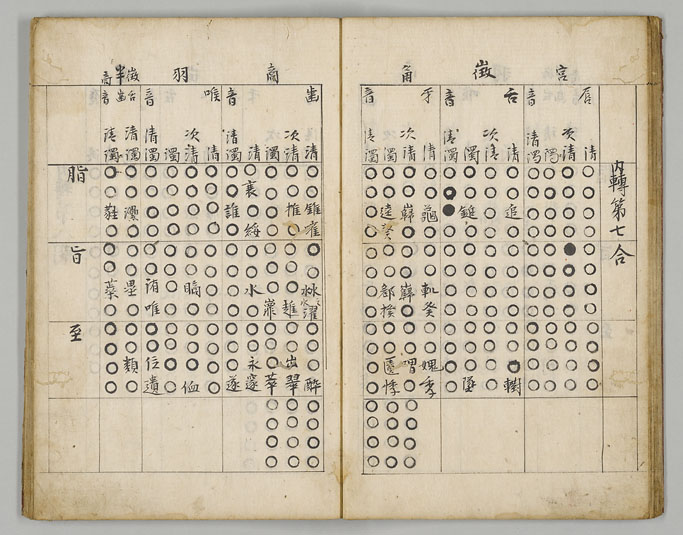 宮
徵
角
內轉第七合
唇 清
次清
濁
音 清濁
舌 清 追 轛
次清
濁 鎚 墜
音 清濁
牙 清 龜 軌 癸 媿 季
次清 巋 巋 喟
濁 逵 葵 揆 匱 悸
音 清濁
商
羽
徵半商
齒 清 錐 濢 醉
次清 推 趡 出 翠
濁 萃
清 衰 綏 水
音 清濁 誰 遂
喉 清
次清 瞲 侐
濁
音 清濁 唯 位 遺
舌齒 清濁 壘 類
音 清濁 蕤 蘂
脂
旨
至